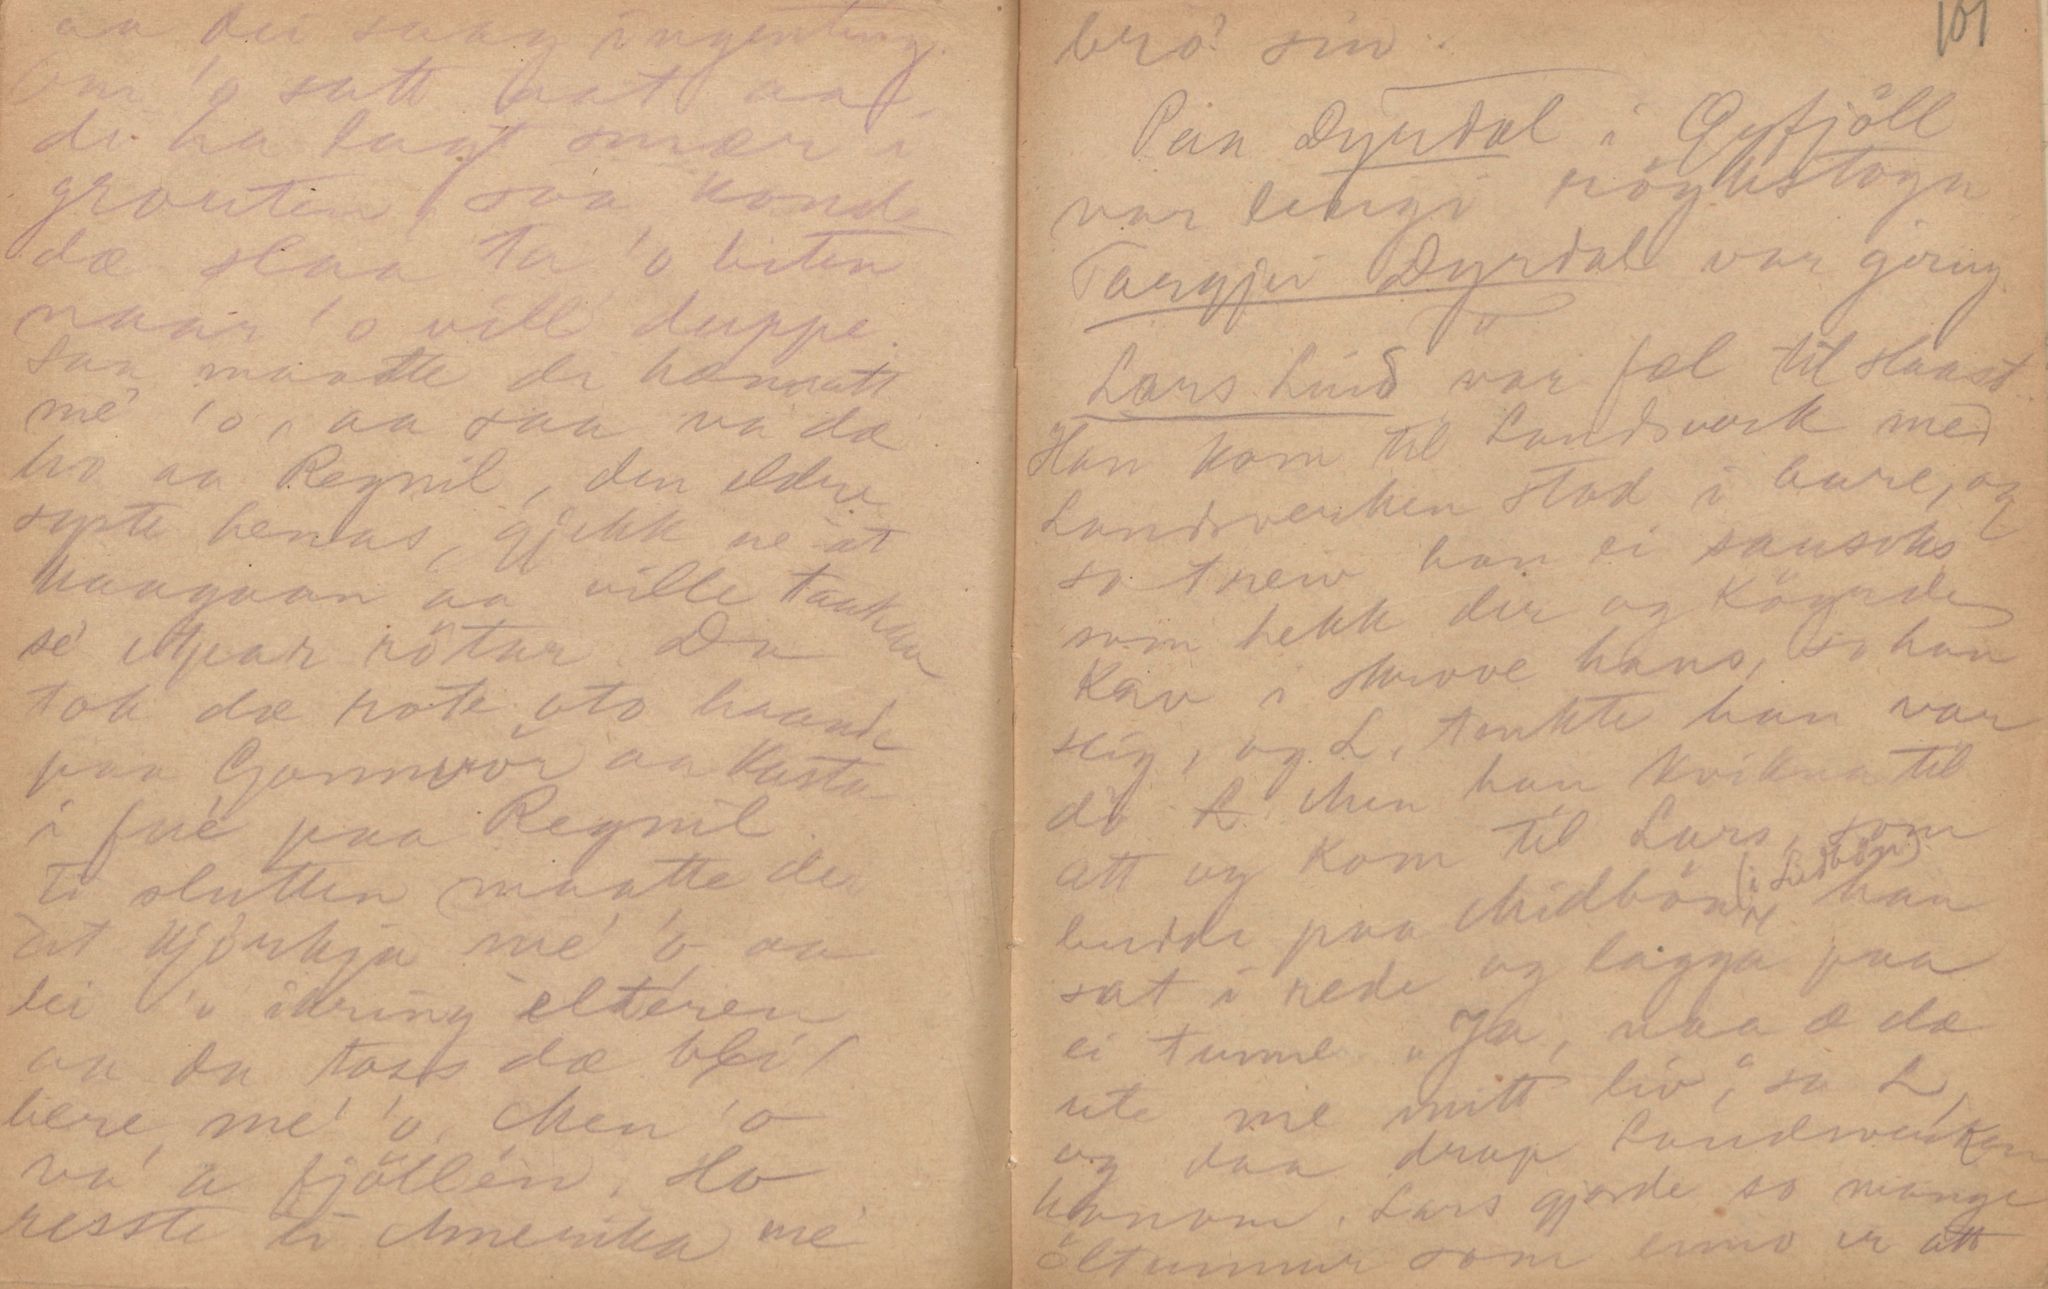 aa dei saag ingenting.
Om 'o satt aat aa
di ha lagt smær i
grauten, saa konde
dæ slaa ta 'o biten
naar 'o vill' duppe.
Saa maatte di
mé 'o, aa saa va dæ
ho aa Regnil, den eldre
syste hennas, gjekk ne at
haagaan aa ville
sé itpar rötar. Da
tok dæ rote uto haande
paa Gonnvor aa kasta
i fué paa Regnil.
Ti slutten maatte dei
at Kjörkja mé 'o aa
lei 'o ikring elteren
aa da toss dæ blei
bere mé 'o. Men 'o
va' a fjöllén. Ho
resste ti Amerika mé
101
bro' sin.
Per Dyrdal i Öyfjöll
var lengi
Targjei Dyrdal var gjering
Lars Lind var fæl til slaast
Han kom til Landsverk med
Landsverken stod i bare, og
so treiv han ei sausoks
som hekk der og köyrde
kav i skrove hans, so han
seig, og L. tenkte han var
dö. Men han kvikna til
att og kom til Lars, som
budde paa Midbön (i Lidbön) han
sat i rede og lagga paa
ei tunne. „Ja, naa æ dæ
ute me mitt liv", sa L,
og daa drap Landsverken
honom. Lars gjorde so mange
öltunnur som enno er att